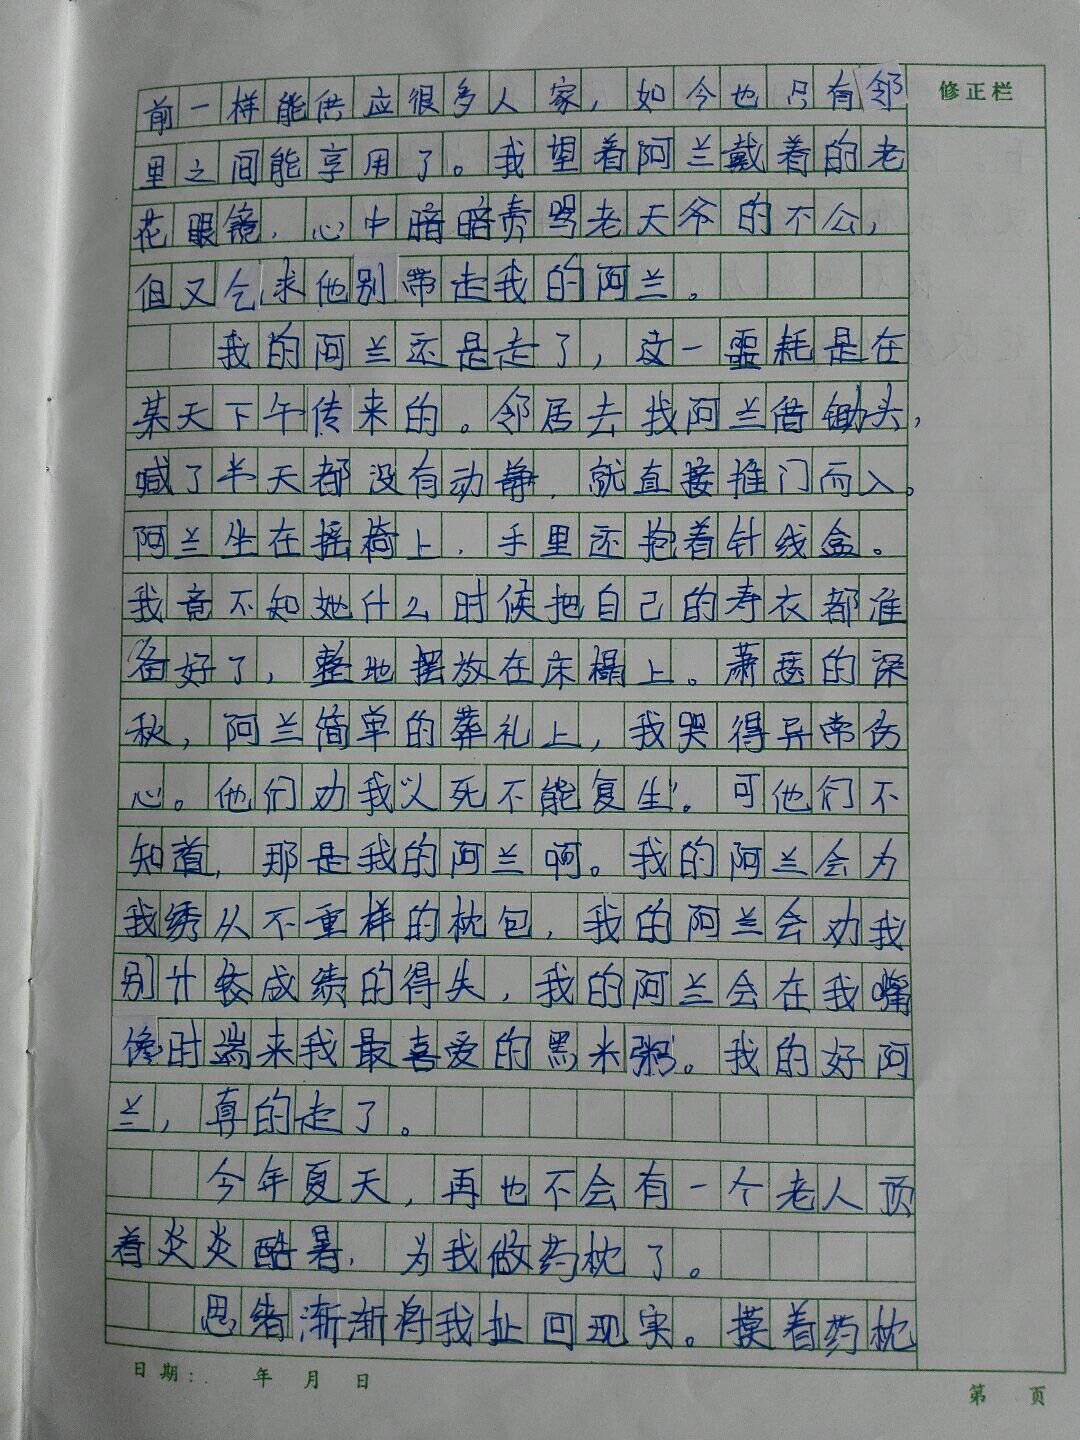 前一样能供应很多人家，如今也只有邻
修正栏
里之间能享用了。我望着阿兰戴着的老
花眼镜，心中暗暗责骂老天爷的不公，
但又乞求他别带走我的阿兰。
我的阿兰还是走了，这一噩耗是在
某天下午传来的。邻居去找阿兰借锄头，
喊了半天都没有动静，就直接推门而入。
阿兰坐在摇椅上，手里还抱着针线盒。
我竟不知她什么时候把自己的寿衣都准
备好了，整地摆放在床榻上。萧瑟的深
秋，阿兰简单的葬礼上，我哭得异常伤
心。他们劝我“人死不能复生”。可他们不
知道，那是我的阿兰啊。我的阿兰会为
我绣从不重样的枕包，我的阿兰会劝我
别计较成绩的得失，我的阿兰会在我嘴
馋时端来我最喜爱的黑米粥。我的好阿
兰，真的走了。
今年夏天，再也不会有一个老人顶
着炎炎酷暑，为我做药枕了。
思绪渐渐将我扯回现实。摸着药枕
日期： 年 月 日
第 页